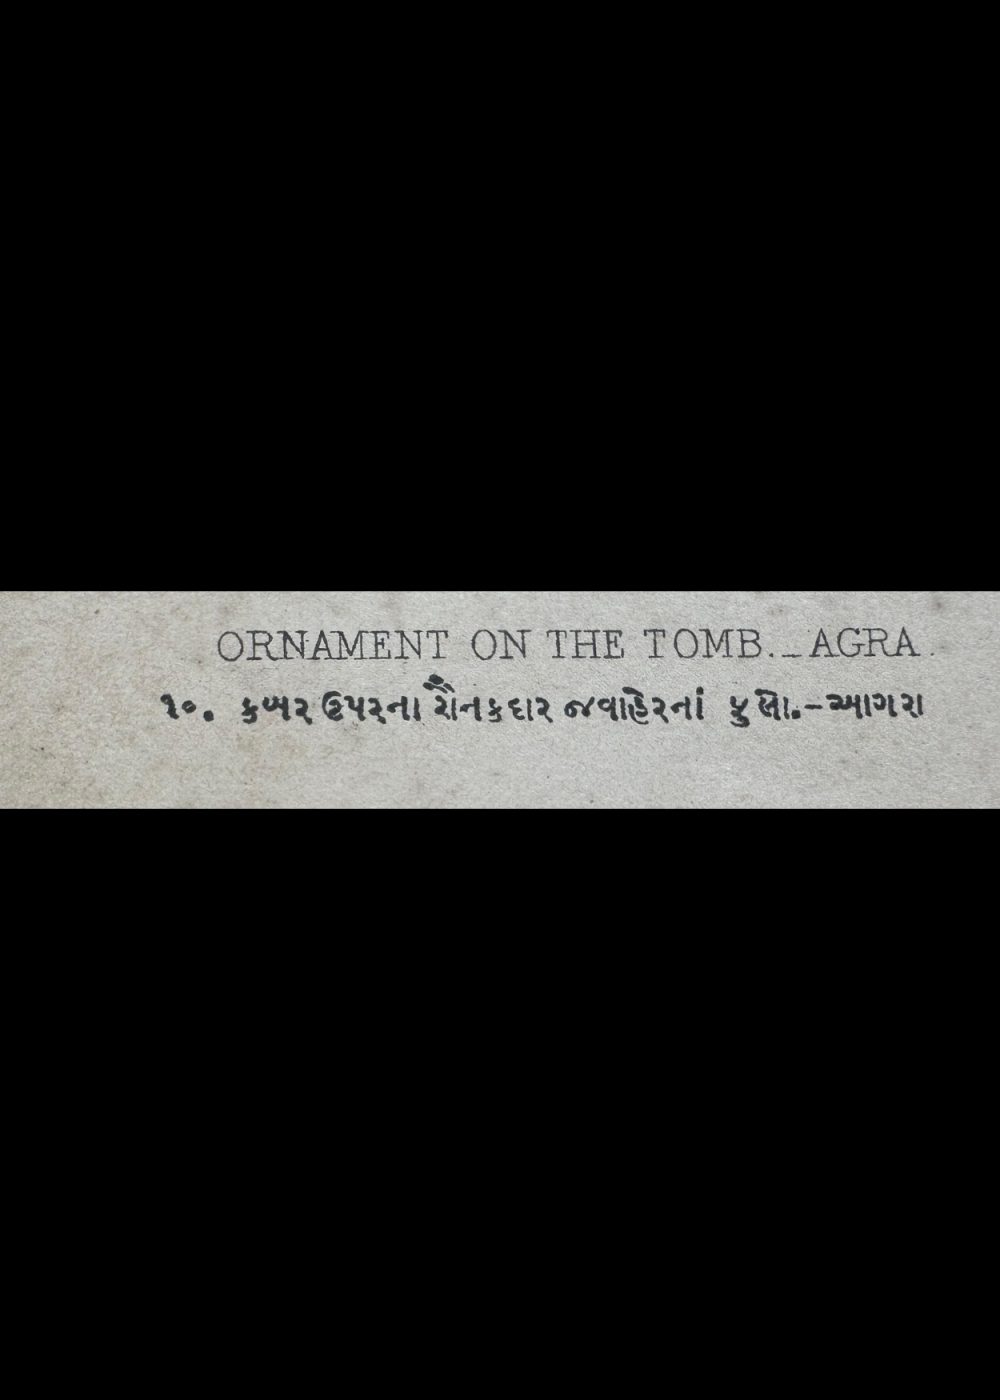 ORNAMENT ON THE TOMB._ AGRA.
૧૦. કબર ઉપરના રૌનકદાર જવાહેરનાં ફુલો.-આગરા